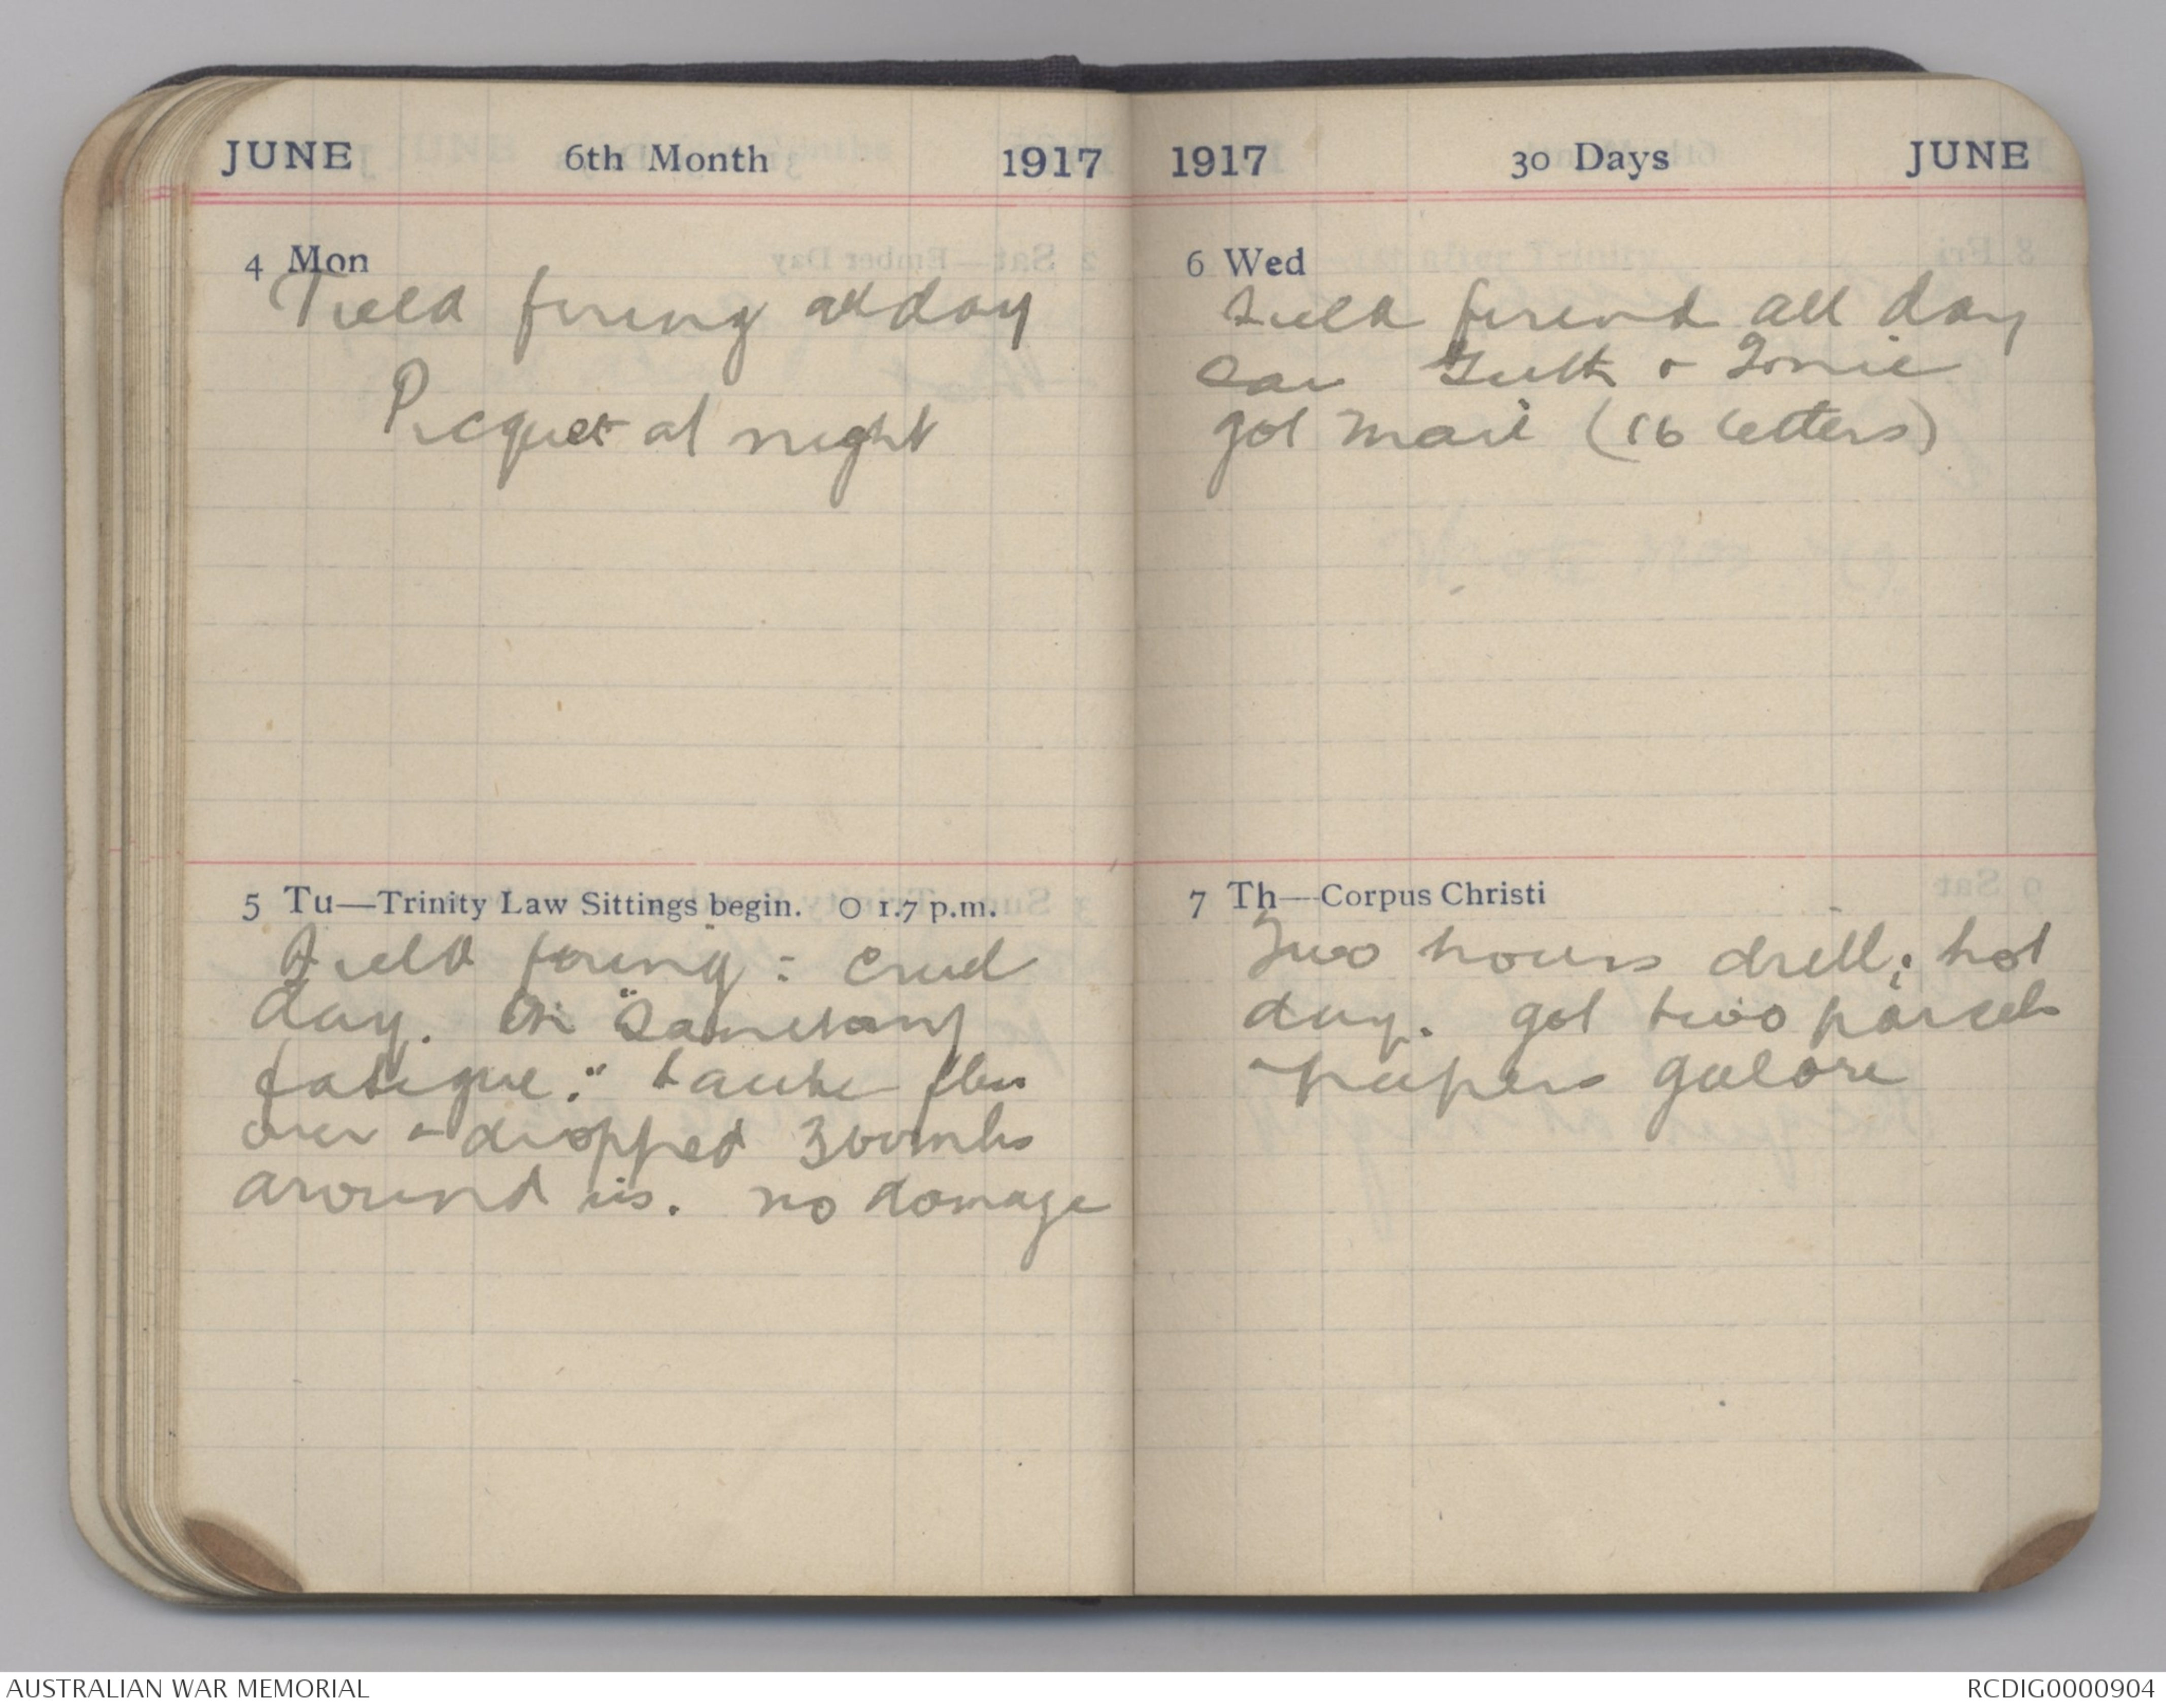 JUNE 6th Month 1917
4 Mon
Field firing all day
Picquet at night
5 Tu—Trinity Law Sittings begin. O 1.7 p.m.
Field firing: cruel
day. On "Sanitary
fatigue:" Taube flew
over & dropped 3 bombs
around us. no damage
1917 30 Days JUNE
6 Wed
Field all day
saw &
got mail (16 letters)
7 Th—Corpus Christi
Two hours drill; hot
day. got two parcels
& papers galore
AUSTRALIAN WAR MEMORIAL
RCDIG0000904